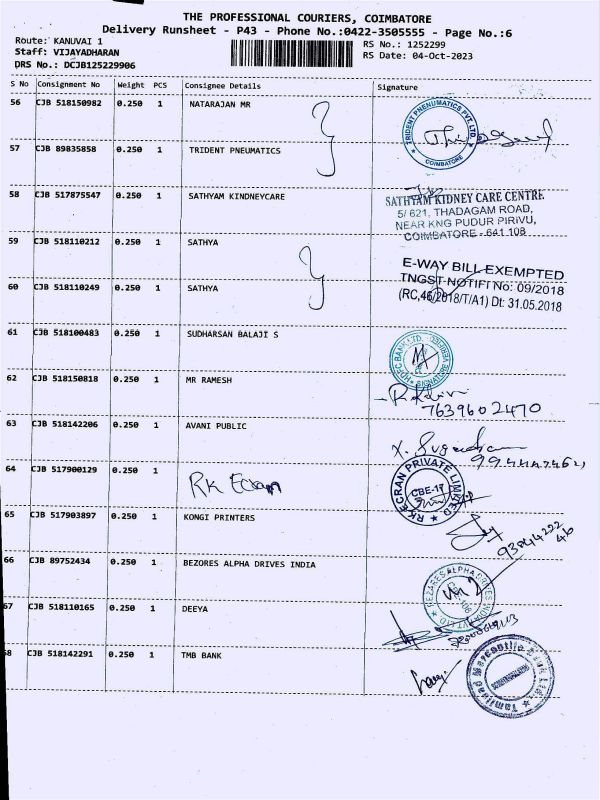 THE PROFESSIONAL COURIERS, COIMBATORE
Delivery Runsheet - P43 - Phone No.:0422-3505555 - Page No.:6
Route: KANUVAI 1
Staff: VIJAYADHARAN
DRS No.: DCJB125229906
RS No.: 1252299
RS Date: 04-Oct-2023
S No Consignment No Weight PCS Consignee Details Signature
56 CJB 518150982 0.250 1 NATARAJAN MR
TRIDENT PNEUMATICS PVT.LTD. COIMBATORE
57 CJB 89835858 0.250 1 TRIDENT PNEUMATICS
58 CJB 517875547 0.250 1 SATHYAM KINDNEYCARE
SATHYAM KIDNEY CARE CENTRE
5/ 621, THADAGAM ROAD,
NEAR KNG PUDUR PIRIVU,
COIMBATORE - 641 108
59 CJB 518110212 0.250 1 SATHYA
E-WAY BILL EXEMPTED
TNGST-NOTIFI No: 09/2018
(RC,46/2018/T/A1) Dt: 31.05.2018
60 CJB 518110249 0.250 1 SATHYA
61 CJB 518100483 0.250 1 SUDHARSAN BALAJI S
HDFC BANK LTD. SIGNATURE
62 CJB 518150818 0.250 1 MR RAMESH
7639602470
63 CJB 518142206 0.250 1 AVANI PUBLIC
64 CJB 517900129 0.250 1 RK Ecran
RK ECRAN PRIVATE LIMITED CBE-17
65 CJB 517903897 0.250 1 KONGI PRINTERS
93844222
46
66 CJB 89752434 0.250 1 BEZORES ALPHA DRIVES INDIA
67 CJB 518110165 0.250 1 DEEYA
68 CJB 518142291 0.250 1 TMB BANK
Tamilnad Mercantile Bank Ltd